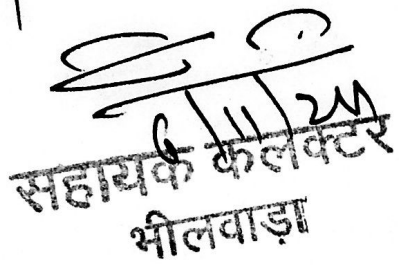 6/11/24
सहायक कलक्टर
भीलवाड़ा